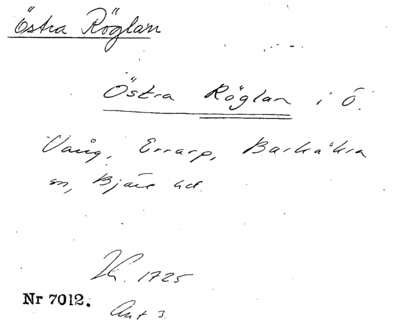 Östra Röglan
Östra Röglan i Ö.
Vång, Errarp, Barkåkra
sn, Bjäre hd.
1725
Nr 7012.
Akt 3.